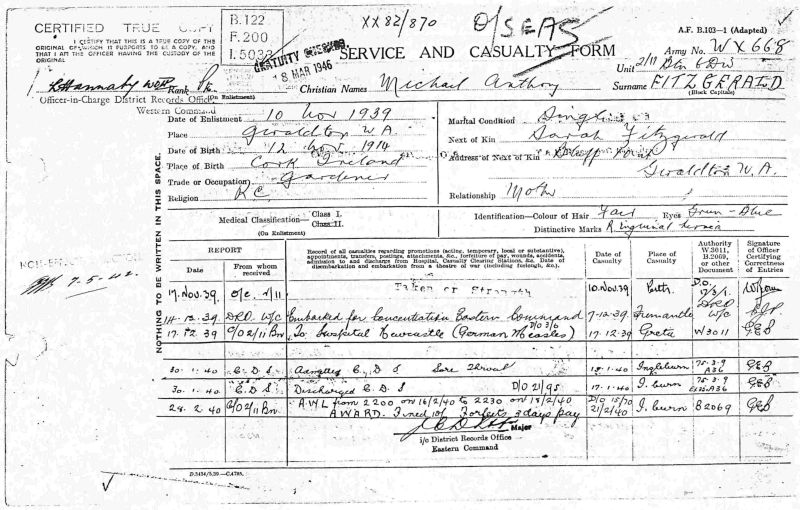 CERTIFIED TRUE COPY
I CERTIFY THAT THIS IS A TRUE COPY OF THE
ORIGINAL OF WHICH IT PURPORTS TO BE A COPY, AND
THAT I AM THE OFFICER HAVING THE CUSTODY OF THE
ORIGINAL
Officer-in-Charge District Records Office
Western Command
B.122
F.200
I.5033
XX82/870
O/SEAS
A.F. B.103—1 (Adapted)
18 MAR 1946
SERVICE AND CASUALTY FORM
Army No. WX668
Unit 2/11 Btn 6 Div
Rank Pte
(On Enlistment)
Christian Names Michael Anthony
Surname FITZGERALD
(Block Capitals)
Date of Enlistment 10 Nov 1939
Place Geraldton W.A.
Date of Birth 12 Nov 1914
Place of Birth Cork Ireland
Trade or Occupation Gardener
Religion RC
Marital Condition Single
Next of Kin Sarah Fitzgerald
Address of Next of Kin Bluff Point
Geraldton W.A.
Relationship Mother
Medical Classification— Class I.
Class II.
(On Enlistment)
Identification—Colour of Hair Fair Eyes Green-Blue
Distinctive Marks R Inguinal hernia
NOTHING TO BE WRITTEN IN THIS SPACE.
7-5-42
REPORT
Date
From whom received
Record of all casualties regarding promotions (acting, temporary, local or substantive), appointments, transfers, postings, attachments, &c., forfeiture of pay, wounds, accidents, admission to and discharge from Hospital, Casualty Clearing Stations, &c. Date of disembarkation and embarkation from a theatre of war (including furlough, &c.).
Date of Casualty
Place of Casualty
Authority W.3011, B.2069, or other Document
Signature of Officer Certifying Correctness of Entries
17. Nov. 39 O/c. 2/11 Taken on Strength 10. Nov. 39 Perth. D.O.
14-12-39 DRO W/C Embarked for Concentration Eastern Command 7-12-39 Fremantle DRO W/C
17-12-39 C/O 2/11 Bn To Hospital Newcastle (German Measles) 17-12-39 Greta W3011 GEB
30-1-40 C.D.S Sore Throat Ingleburn 75-3-9 A36 GEB
30-1-40 C.D.S Discharged C.D.S D/O 21/95 17-1-40 I. burn 75-3-9 GEB
28.2.40 C/O 2/11 Bn A.W.L from 2200 on 16/2/40 to 2230 on 18/2/40 D/O 15/70
AWARD. Fined 10/- Forfeits 3 days pay 21/2/40 I. burn B2069 GEB
Major
i/c District Records Office
Eastern Command
D.3454/5.39.—C.4785.